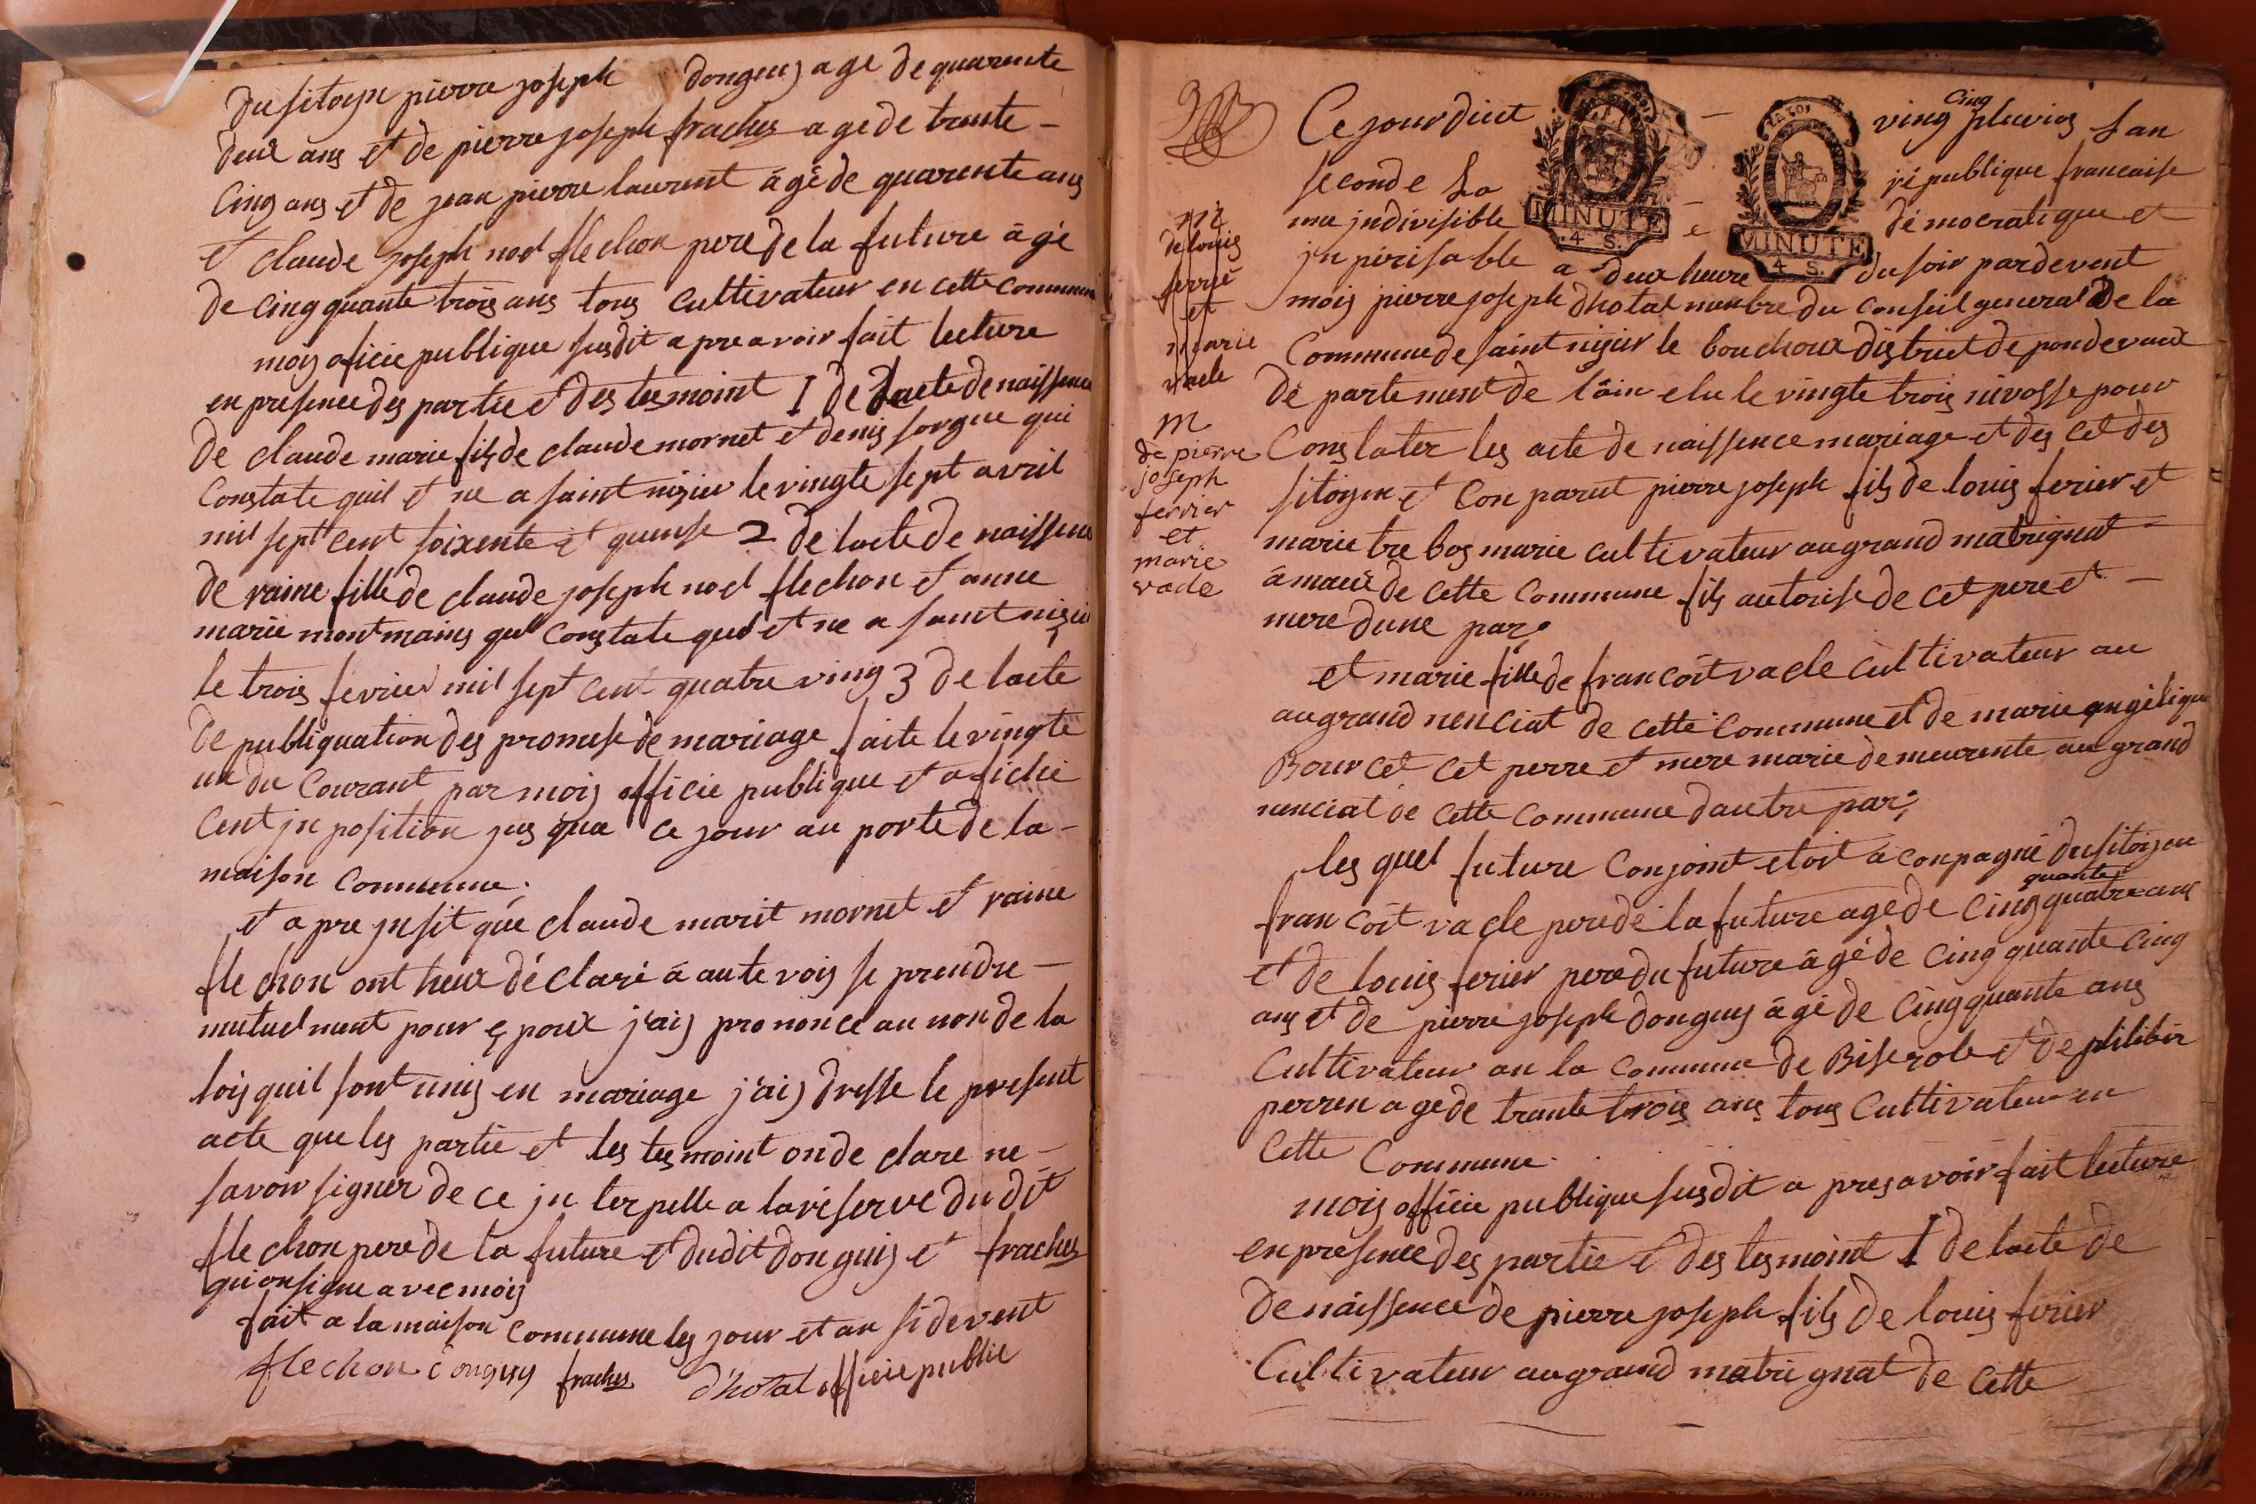 Du sitoyn pierre joseph donguy age de quarente
deux ans et de pierre joseph fraches age de trente
cinq ans et de jean pierre laurent âgé de quarente ans
et claude joseph noel flechon pere de la future âgé
de cinq quante trois ans tous cultivateur en cette commune
mois oficie publique susdit apre avoir fait lecture
en presence des partie et des tesmoint 1 de lacte de naissence
de claude marie fils de claude mornet et denis sorgue qui
constate quil et ne a saint nizier le vingte sept avril
mil sept cent soixente et quense 2 de lacte de naissence
de raine fille de claude joseph noel flechon et anne
marie montmains qui constate quel et ne a saint nizier
le trois fevrier mil sept cent quatre ving 3 de lacte
de publiquation des promese de mariage faite le vingte
un du courant par mois officie publique et afiche
cent jn position jus qua ce jour au porte de la
maison commune.
et apre jnsit que claude marit mornet et raine
flechon ont heux déclaré à aute vois se prendre
mutuelment pour epoux j'aij prononce au non de la
lois quil sont unis en mariage j'aij dressé le present
acte que les partie et les tesmoint on de clare ne
savoir signer de ce jnterpelle a la réserve du dit
flechon pere de la future et dudit donguij et fraches
qui on signe avec mois
fait a la maison commune les jour et an sidevent
flechon donguy fraches d'hotal officie public
Ce jourduit ving cinq pluvios lan
seconde La république francaise
une jndivisible e démocratique et
jnpérisable a deux heure du soir pardevent
mois pierre joseph dhotal menbre du conseil general de la
commune de saint nizier le bouchoux district de pondevaux
département de l'âin elu le vingte trois nivosse pour
constater les acte de naissence mariage et des cet des
sitoyen et conparut pierre joseph fils de louis ferier et
marie trebos marie cultivateur au grand matrignat
de cette commune fils autorise de cet pere et
mere dune par.
et marie fille de francoit vacle cultivateur au
au grand nenciat de cette commune et de marie angelique
Bourcet cet perre et mere marie demeurente au grand
nenciat de cette commune dautre par;
les quel future conjoint etoit aconpagné du sitoyen
francoit vacle pere de la future age de cinq quante quatre ans
et de louis ferier pere du future âgé de cinq quante cinq
ans et de pierre joseph donguy âgé de cinq quante ans
cultivateur an la commune de Biserole et de philibir
perren age de trante trois ans tous cultivateur en
cette commune.
mois officie publique susdit a pres avoir fait lecture
en presence des partie et des tesmoint 1 de lacte de
de naissence de pierre joseph fils de louis ferier
cultivateur au grand matrignat de cette
MINUTE
4 S.
MINUTE
4 S.
de louis
ferrie
et
marie
vacle
m
de pierre
joseph
ferrier
et
marie
vacle